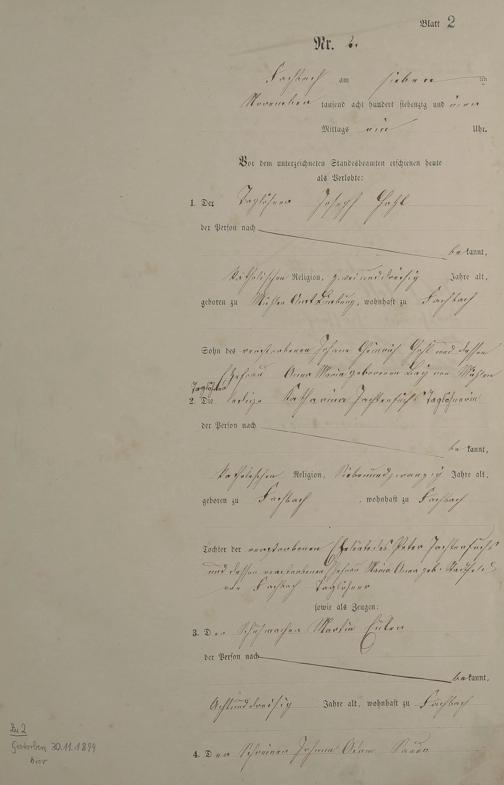 Blatt 2
Nr. 2.
Fachbach am sieben ten
November tausend acht hundert siebenzig und
Mittags ein Uhr.
Vor dem unterzeichneten Standesbeamten erschienen heute
als Verlobte:
1. Der Taglöhner Joseph
der Person nach
bekannt,
katholischen Religion, zweiunddreißig Jahre alt,
geboren zu Amt Limburg, wohnhaft zu Fachbach
Sohn des verstorbenen Johann Heinrich und dessen
Ehefrau Anna Maria geborenen von
Taglöhner
2. Die ledige Katharina Taglöhnerin
der Person nach
bekannt,
katholischen Religion, siebenundzwanzig Jahre alt,
geboren zu Fachbach, wohnhaft zu Fachbach
Tochter der verstorbenen Eheleute des Peter
und dessen verstorbenen Maria Anna geb.
von Fachbach Taglöhner
sowie als Zeugen:
3. Der Schuhmacher Martin
der Person nach
bekannt,
Achtunddreißig Jahre alt, wohnhaft zu Fachbach
4. Der Schreiner Johann Adam
Zu 2
Gestorben 30.11.1894
hier